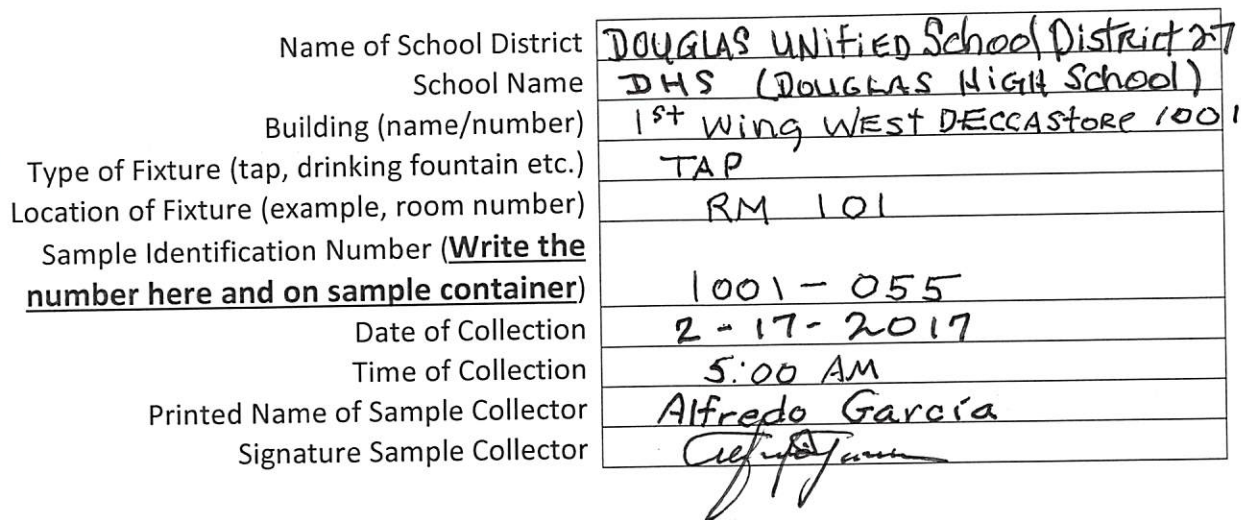 Name of School District DOUGLAS UNIFIED School District 27
School Name DHS (DOUGLAS HIGH School)
Building (name/number) 1st Wing WEST DECCASTORE 1001
Type of Fixture (tap, drinking fountain etc.) TAP
Location of Fixture (example, room number) RM 101
Sample Identification Number (Write the
number here and on sample container) 1001-055
Date of Collection 2-17-2017
Time of Collection 5:00 AM
Printed Name of Sample Collector Alfredo García
Signature Sample Collector